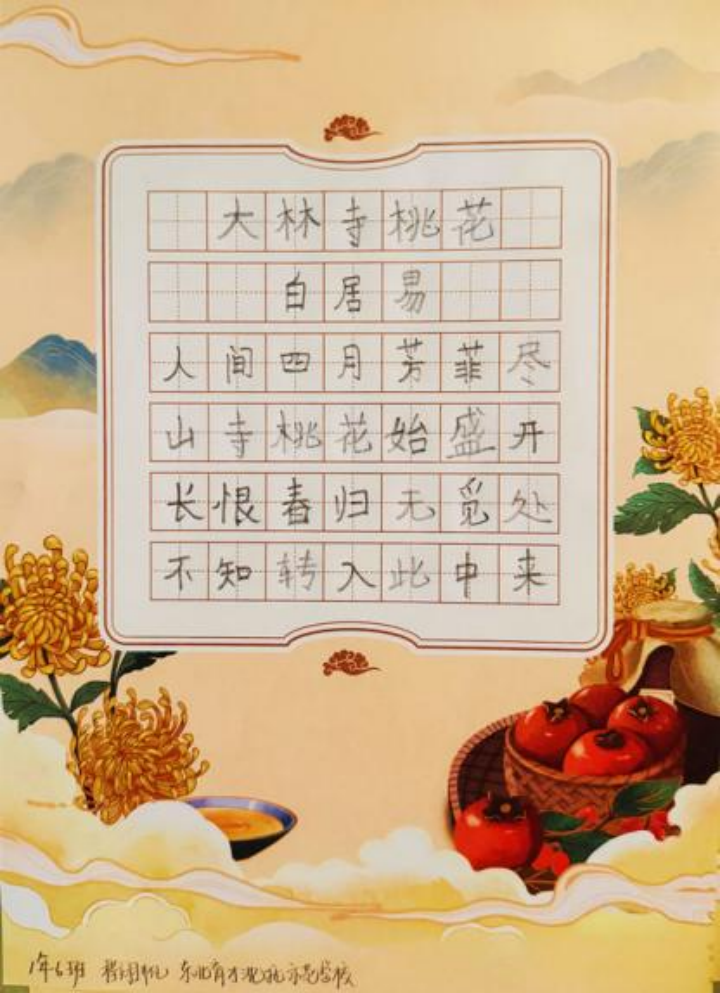 大林寺桃花
白居易
人间四月芳菲尽
山寺桃花始盛开
长恨春归无觅处
不知转入此中来
1年6班 东北育才学校